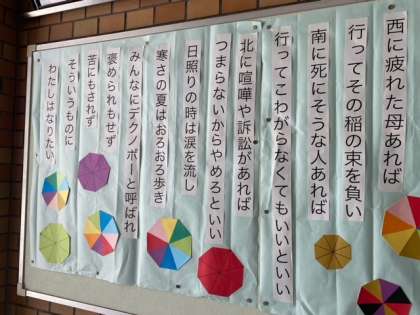 西に疲れた母あれば
行ってその稲の束を負い
南に死にそうな人あれば
行ってこわがらなくてもいいといい
北に喧嘩や訴訟があれば
つまらないからやめろといい
日照りの時は涙を流し
寒さの夏はおろおろ歩き
みんなにデクノボーと呼ばれ
褒められもせず
苦にもされず
そういうものに
わたしはなりたい